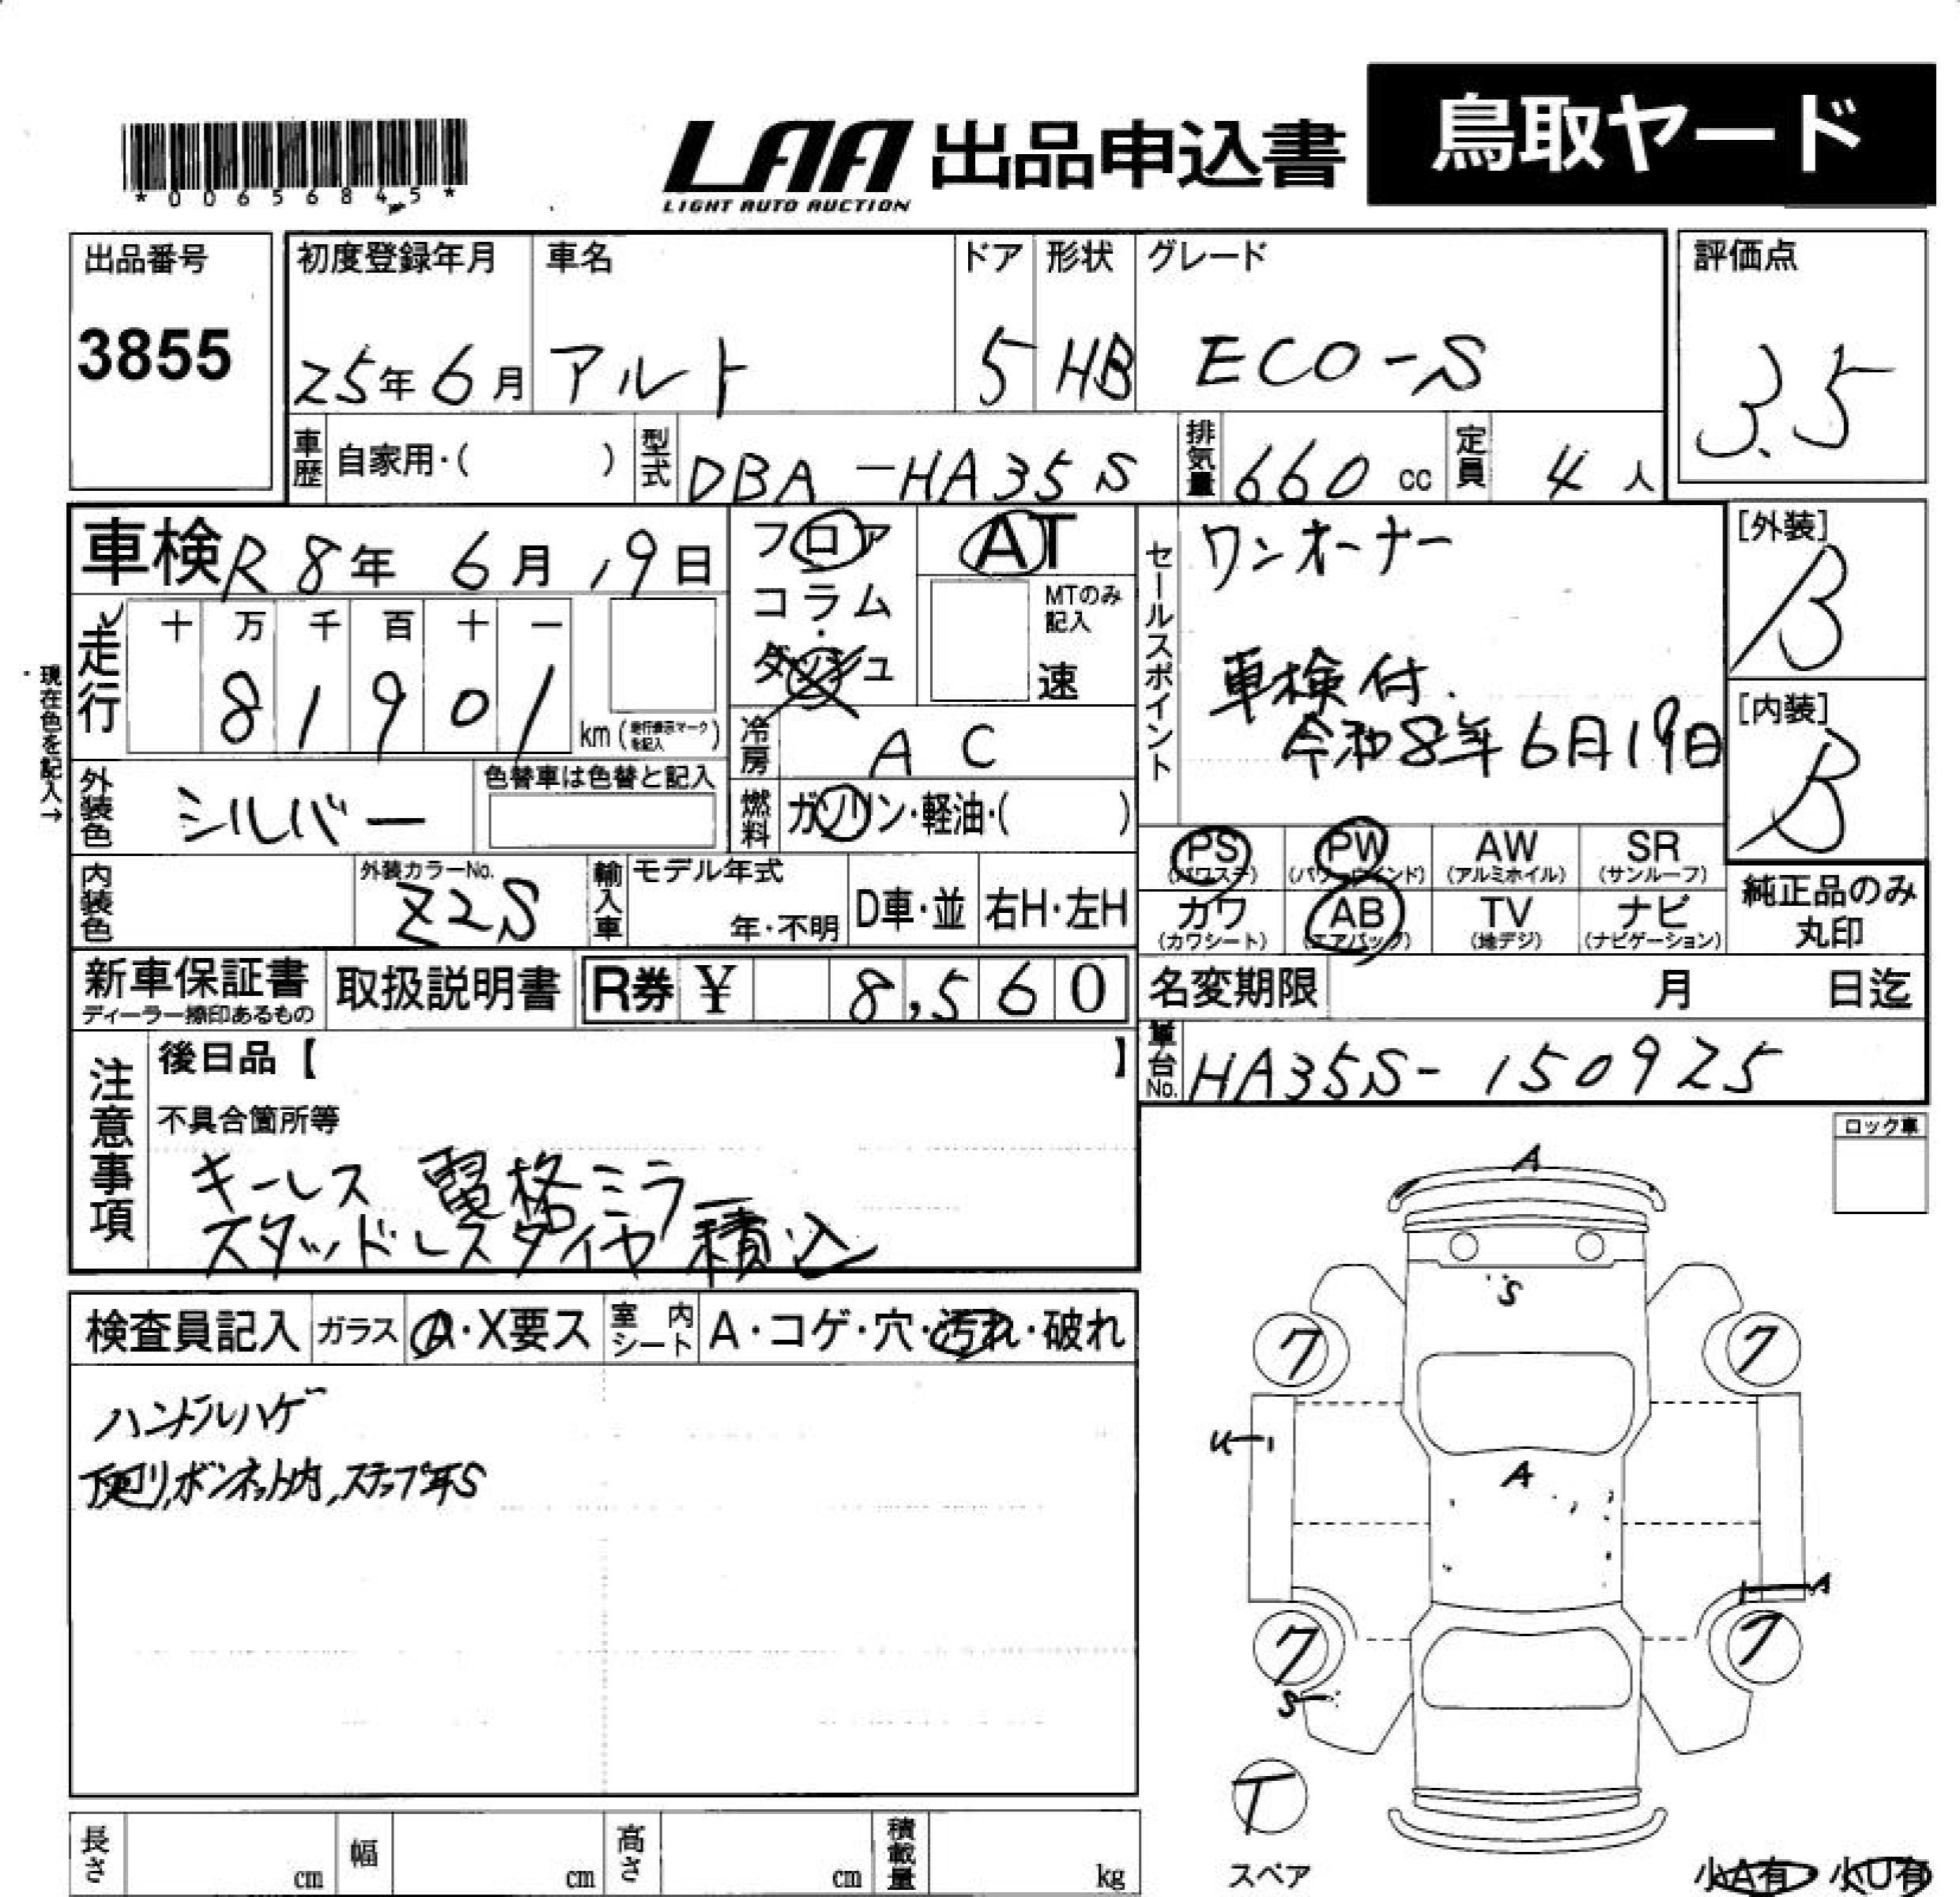 *0065684-5*
LAA 出品申込書 鳥取ヤード
LIGHT AUTO AUCTION
出品番号
3855
初度登録年月 車名 ドア 形状 グレード
25年6月 アルト 5 HB ECO-S
評価点
3.5
車歴 自家用・( ) 型式 DBA-HA35S 排気量 660 cc 定員 4人
車検 R8年6月19日
フロア
コラム
・
ダッシュ
AT
MTのみ
記入
速
セールスポイント
ワンオーナー
車検付.
令和8年6月19日
[外装]
B
[内装]
B
現在色を記入→
走行
十 万 千 百 十 一
8 1 9 0 1
km (走行表示マークを記入)
冷房 AC
外装色 シルバー
色替車は色替と記入
燃料 ガソリン・軽油・( )
PS AW SR PW
(パワステ) (パワーウインド) (アルミホイル) (サンルーフ)
カワ AB TV ナビ
(カワシート) (エアバッグ) (地デジ) (ナビゲーション)
純正品のみ
丸印
内装色
外装カラーNo.
Z2S
輸入車
モデル年式
年・不明
D車・並
右H・左H
新車保証書
ディーラー捺印あるもの
取扱説明書
R券 ¥ 8,560
名変期限 月 日迄
車台No. HA35S-150925
注意事項
後日品【 】
不具合箇所等
キーレス 電格ミラー
スタッドレスタイヤ積込
ロック車
検査員記入 ガラス A・X要ス 室内シート A・コゲ・穴・汚れ・破れ
ハンドルハゲ
下廻り,ボンネット内,ステップ等S
A
S
ク ク
U
A
A
ク フ
S
T
スペア
小A有・小U有
長さ cm 幅 cm 高さ cm 積載量 kg